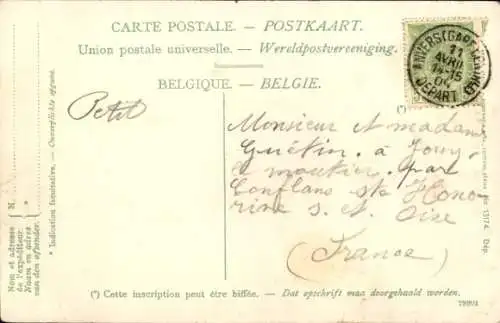 CARTE POSTALE. - POSTKAART.
Union postale universelle. - Wereldpostvereeniging.
BELGIQUE. - BELGIE.
ANVERS (GARE CENTRALE)
11
AVRIL
14-15
DÉPART
(*)
Petit
Monsieur et madame
Guétin. à Jouy
le moutier. par
Conflans Ste Hono-
rine S. et Oise
(France)
N.
*
Nom et adresse
de l'expéditeur.
Naam en adres
van den afzender.
* Indication facultative. - Onverplichte opgave.
13174. Dép.
(*) Cette inscription peut être biffée. - Dat opschrift mag doorgehaald worden.